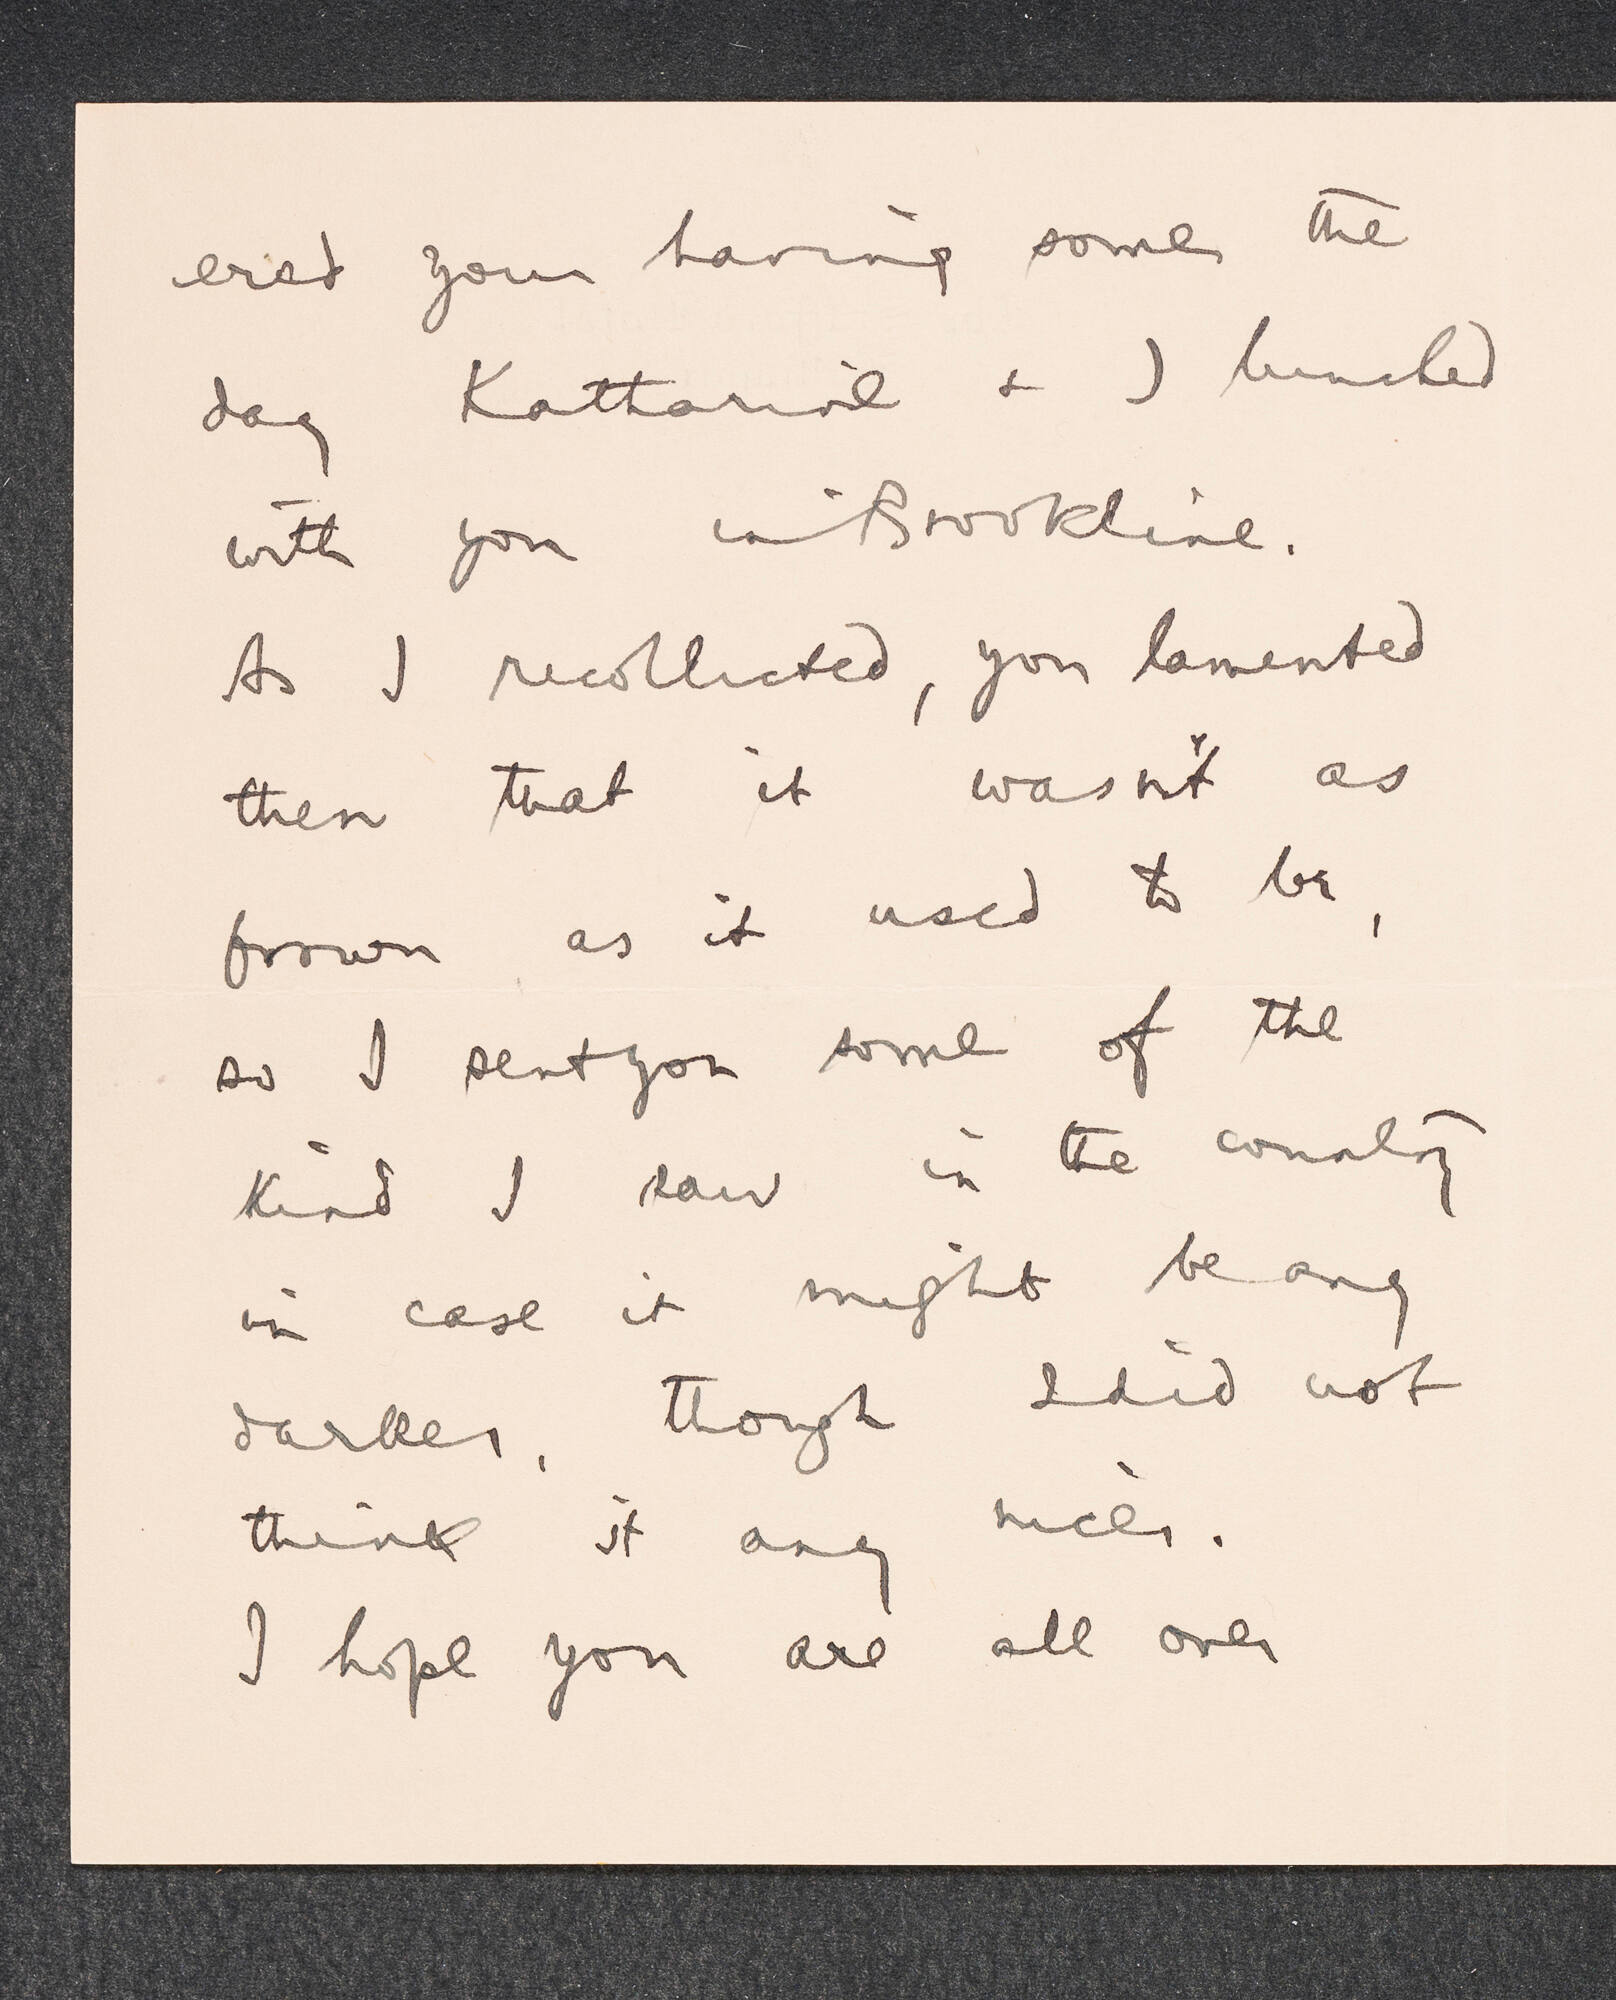 ered your having some the
day Katharine + I lunched
with you in Brookline.
As I recollected, you lamented
then that it wasn't as
brown as it used to be,
so I sent you some of the
kind I saw in the country
in case it might be any
darker, though I did not
think it any nicer.
I hope you are all over